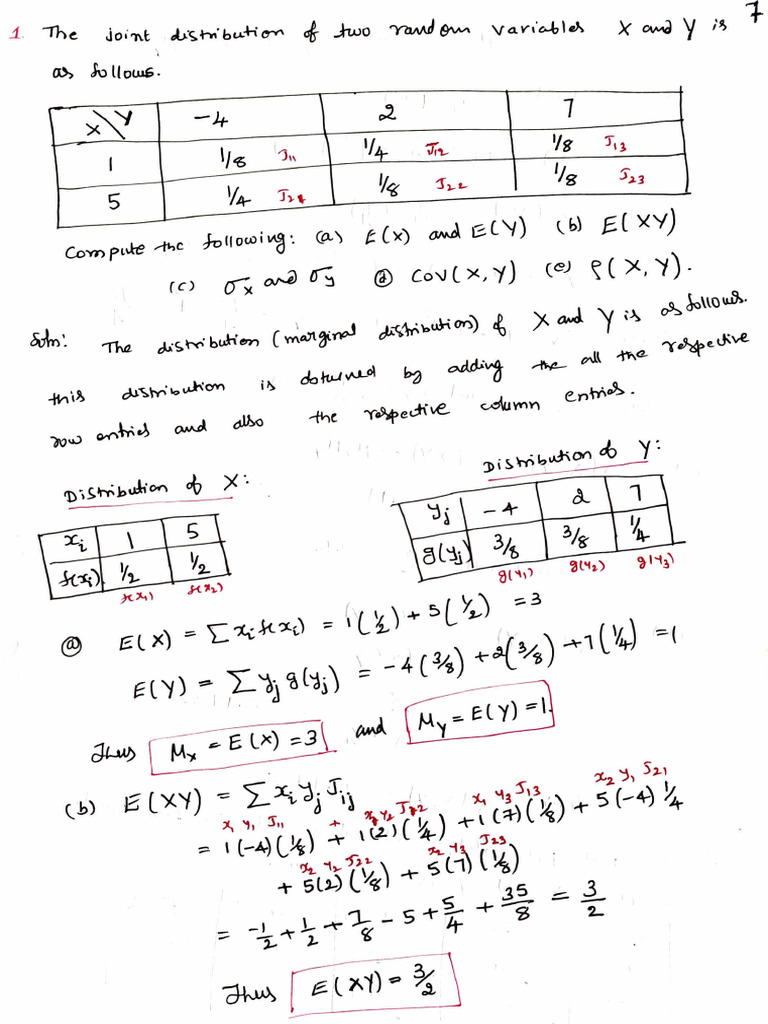 7
1. The joint distribution of two random variables X and Y is
as follows.
X\Y -4 2 7
1 1/8 J11 1/4 J12 1/8 J13
5 1/4 J21 1/8 J22 1/8 J23
Compute the following: (a) E(X) and E(Y) (b) E(XY)
(c) σx and σy (d) COV(X,Y) (e) ρ(X,Y).
Soln: The distribution (marginal distribution) of X and Y is as follows.
this distribution is obturned by adding the all the respective
row entries and also the respective column entries.
Distribution of X:
Distribution of Y:
xi 1 5
f(xi) 1/2 1/2
f(x1) f(x2)
yj -4 2 7
g(yj) 3/8 3/8 1/4
g(y1) g(y2) g(y3)
(a) E(X) = Σ xi f(xi) = 1(1/2) + 5(1/2) = 3
E(Y) = Σ yj g(yj) = -4(3/8) + 2(3/8) + 7(1/4) = 1
Thus Mx = E(X) = 3 and My = E(Y) = 1.
(b) E(XY) = Σ xi yj Jij
x1 y1 J11 + y2 x1 y3 J13 x2 y1 J21
= 1(-4)(1/8) + 1(2)(1/4) + 1(7)(1/8) + 5(-4) 1/4
x2 y2 J22 x2 y3 J23
+ 5(2)(1/8) + 5(7)(1/8)
= -1/2 + 1/2 + 7/8 - 5 + 5/4 + 35/8 = 3/2
Thus E(XY) = 3/2